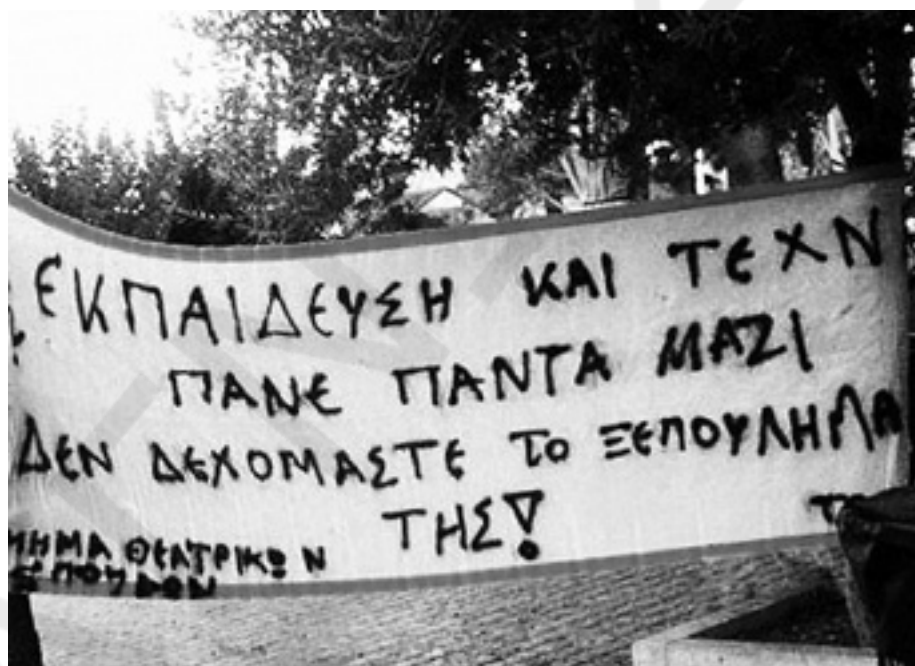 ΕΚΠΑΙΔΕΥΣΗ ΚΑΙ ΤΕΧΝ
ΠΑΝΕ ΠΑΝΤΑ ΜΑΖΙ
ΔΕΝ ΔΕΧΟΜΑΣΤΕ ΤΟ ΞΕΠΟΥΛΗΜΑ
ΤΗΣ!
ΜΗΜΑ ΘΕΑΤΡΙΚΩΝ
ΣΠΟΥΔΩΝ